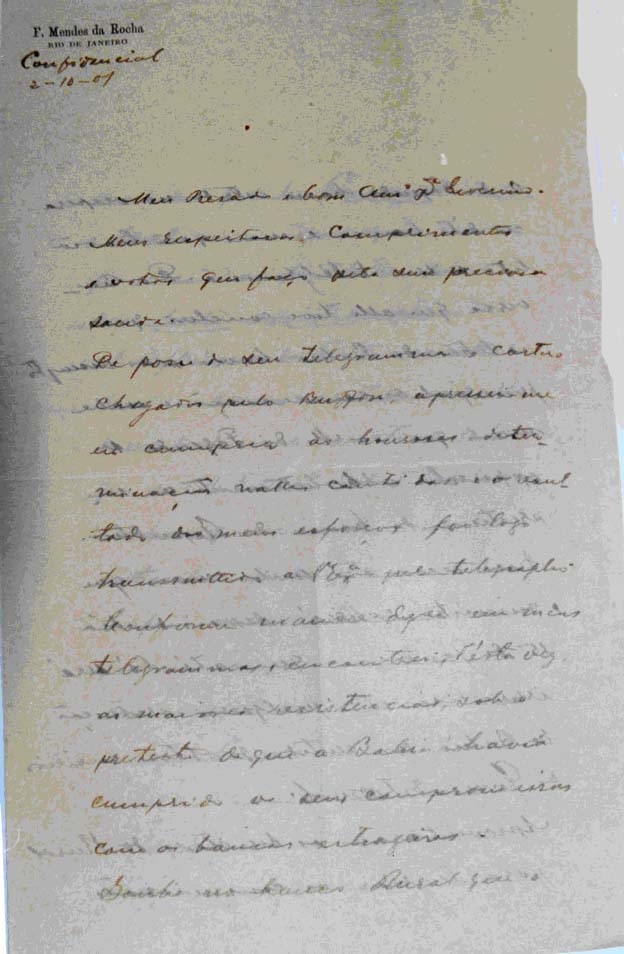 F. Mendes da Rocha
RIO DE JANEIRO
Confidencial
2-10-01
Meu Presado e bom Amº Dr Severino.
Meus respeitosos Comprimentos
e votos que faço pela sua preciosa
saude.
De posse do seu telegramma e cartas
chegadas pelo apressei-me
em cumprir as honrosas deter-
minações nellas contidas e o resul-
tado dos meus esforços foi logo
transmittido a V Exª pelo telegrapho.
Conforme disse em meus
telegrammas, encontrei, d'esta vez,
as maiores resistencias, sob o
pretexto de que a Bahia havia
cumprido os seus compromissos
com os bancos estrageiros.
Soube no banco Rural que o